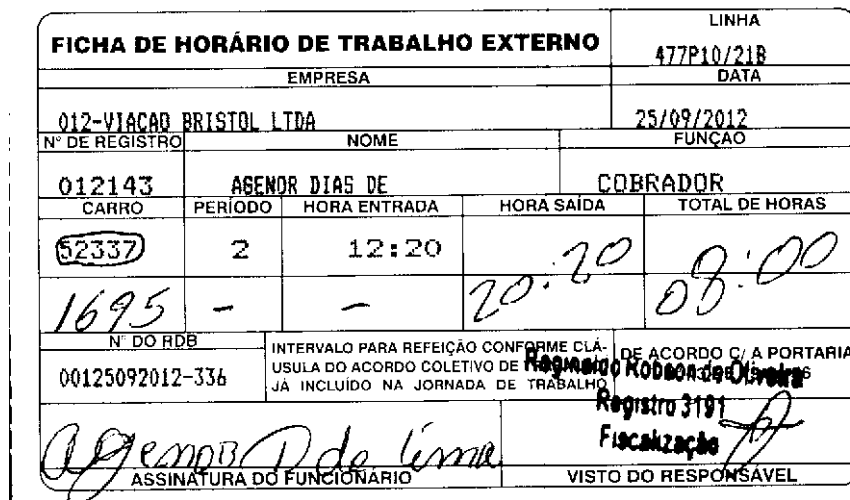 FICHA DE HORÁRIO DE TRABALHO EXTERNO
LINHA
477P10/21B
EMPRESA
DATA
012-VIACAO BRISTOL LTDA
25/09/2012
N° DE REGISTRO
NOME
FUNÇÃO
012143
AGENOR DIAS DE
COBRADOR
CARRO
PERÍODO
HORA ENTRADA
HORA SAÍDA
TOTAL DE HORAS
52337
2
12:20
20:20
08:00
1695
-
-
N° DO RDB
00125092012-336
INTERVALO PARA REFEIÇÃO CONFORME CLÁ-
USULA DO ACORDO COLETIVO DE
JÁ INCLUÍDO NA JORNADA DE TRABALHO
DE ACORDO C/ A PORTARIA
Reginaldo Robson de Oliveira
Registro 3191
Fiscalização
Agenor D de Lima
ASSINATURA DO FUNCIONARIO
VISTO DO RESPONSÁVEL